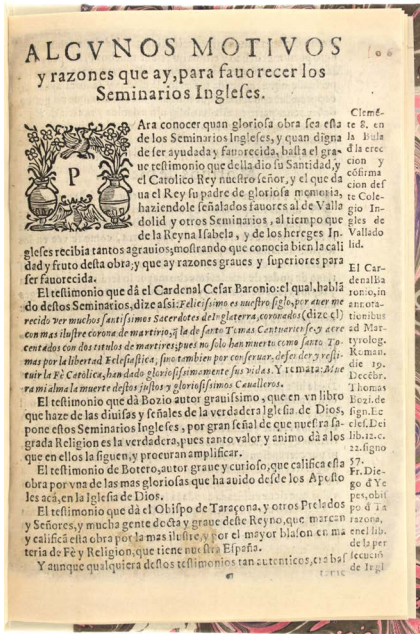 ALGVNOS MOTIVOS
y razones que ay, para fauorecer los
Seminarios Ingleses.
106
PAra conocer quan gloriosa obra sea esta
de los Seminarios Ingleses, y quan digna
de ser ayudada y fauorecida, basta el gra-
ue testimonio que della dio su Santidad, y
el Catolico Rey nuestro señor, y el que da
ua el Rey su padre de gloriosa memoria,
haziendole señalados fauores al de Valla
dolid y otros Seminarios, al tiempo que
de la Reyna Isabela, y de los hereges In-
gleses recibia tantos agrauios; mostrando que conocia bien la cali
dad y fruto desta obra; y que ay razones graues y superiores para
ser fauorecida.
El testimonio que dá el Cardenal Cesar Baronio: el qual, hablā
do destos Seminarios, dize assi: Felicissimo es nuestro siglo, por auer me
recido ver muchos santissimos Sacerdotes de Inglaterra, coronados (dize el)
con mas ilustre corona de martirio, q̃ la de santo Tomas Cantuariense, y acre
centados con dos titulos de martires; pues no solo han muerto como santo To-
mas por la libertad Eclesiastica, sino tambien por conseruar, defender y resti-
tuir la Fè Catolica, han dado gloriosissimamente sus vidas. Y remata: Mue
ra mi alma la muerte destos justos y gloriosissimos Caualleros.
El testimonio que dà Bozio autor grauissimo, que en vn libro
que haze de las diuisas y señales de la verdadera Iglesia de Dios,
pone estos Seminarios Ingleses, por gran señal de que nuestra sa-
grada Religion es la verdadera, pues tanto valor y animo dà a los
que en ellos la siguen, y procuran amplificar.
El testimonio de Botero, autor graue y curioso, que califica esta
obra por vna de las mas gloriosas que ha auido desde los Aposto
les acá, en la Iglesia de Dios.
El testimonio que dà el Obispo de Taraçona, y otros Prelados
y Señores, y mucha gente docta y graue deste Reyno, que marcan
y califica esta obra por la mas ilustre, y por el mayor blason en ma
teria de Fè y Religion, que tiene nuestra España.
Y aunque qualquiera destos testimonios tan autenticos, era bas
Clemē-
te 8. en
la Bula
d la erec
cion y
cōfirma
cion des
te Cole-
gio In-
gles de
Vallado
lid.
El Car-
denal Ba
ronio, in
annota-
tionibus
ad Mar-
tyrolog.
Roman.
die 29.
Decēbr.
Thomas
Bozi. de
sign. Ec
clef. Dei
lib. 12. c.
22. signo
57.
Fr. Die-
go d Ye
pes, obis
po d Ta
razona,
en el lib.
de la per
secució
de Ingl